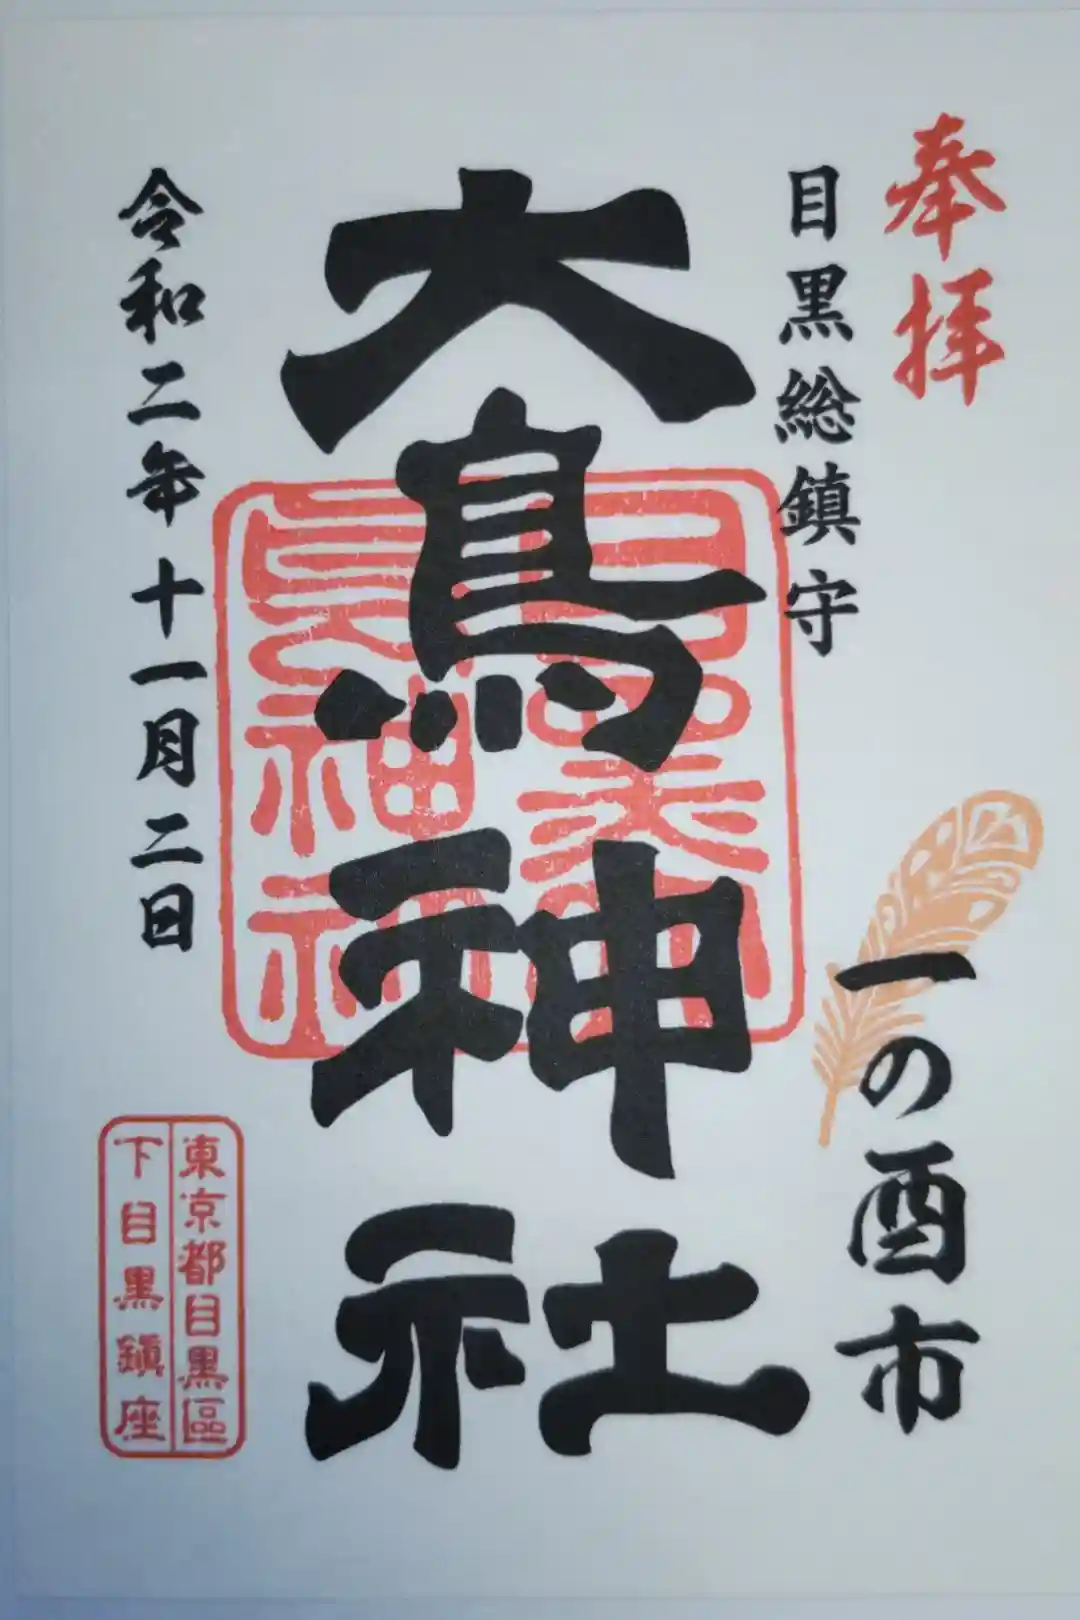 奉拝
目黒総鎮守
一の酉市
大鳥神社
令和二年十一月二日
東京都目黒區
下目黒鎭座